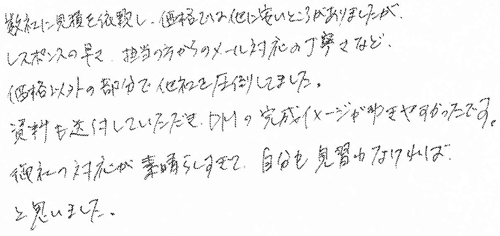 数社に見積を依頼し、価格では他に安いところがありましたが、
レスポンスの早さ、担当の方からのメール対応の丁寧さなど、
価格以外の部分で他社を圧倒してました。
資料も送付していただき、DMの完成イメージがわきやすかったです。
御社の対応が素晴らしすぎて、自分も見習わなければ
と思いました。